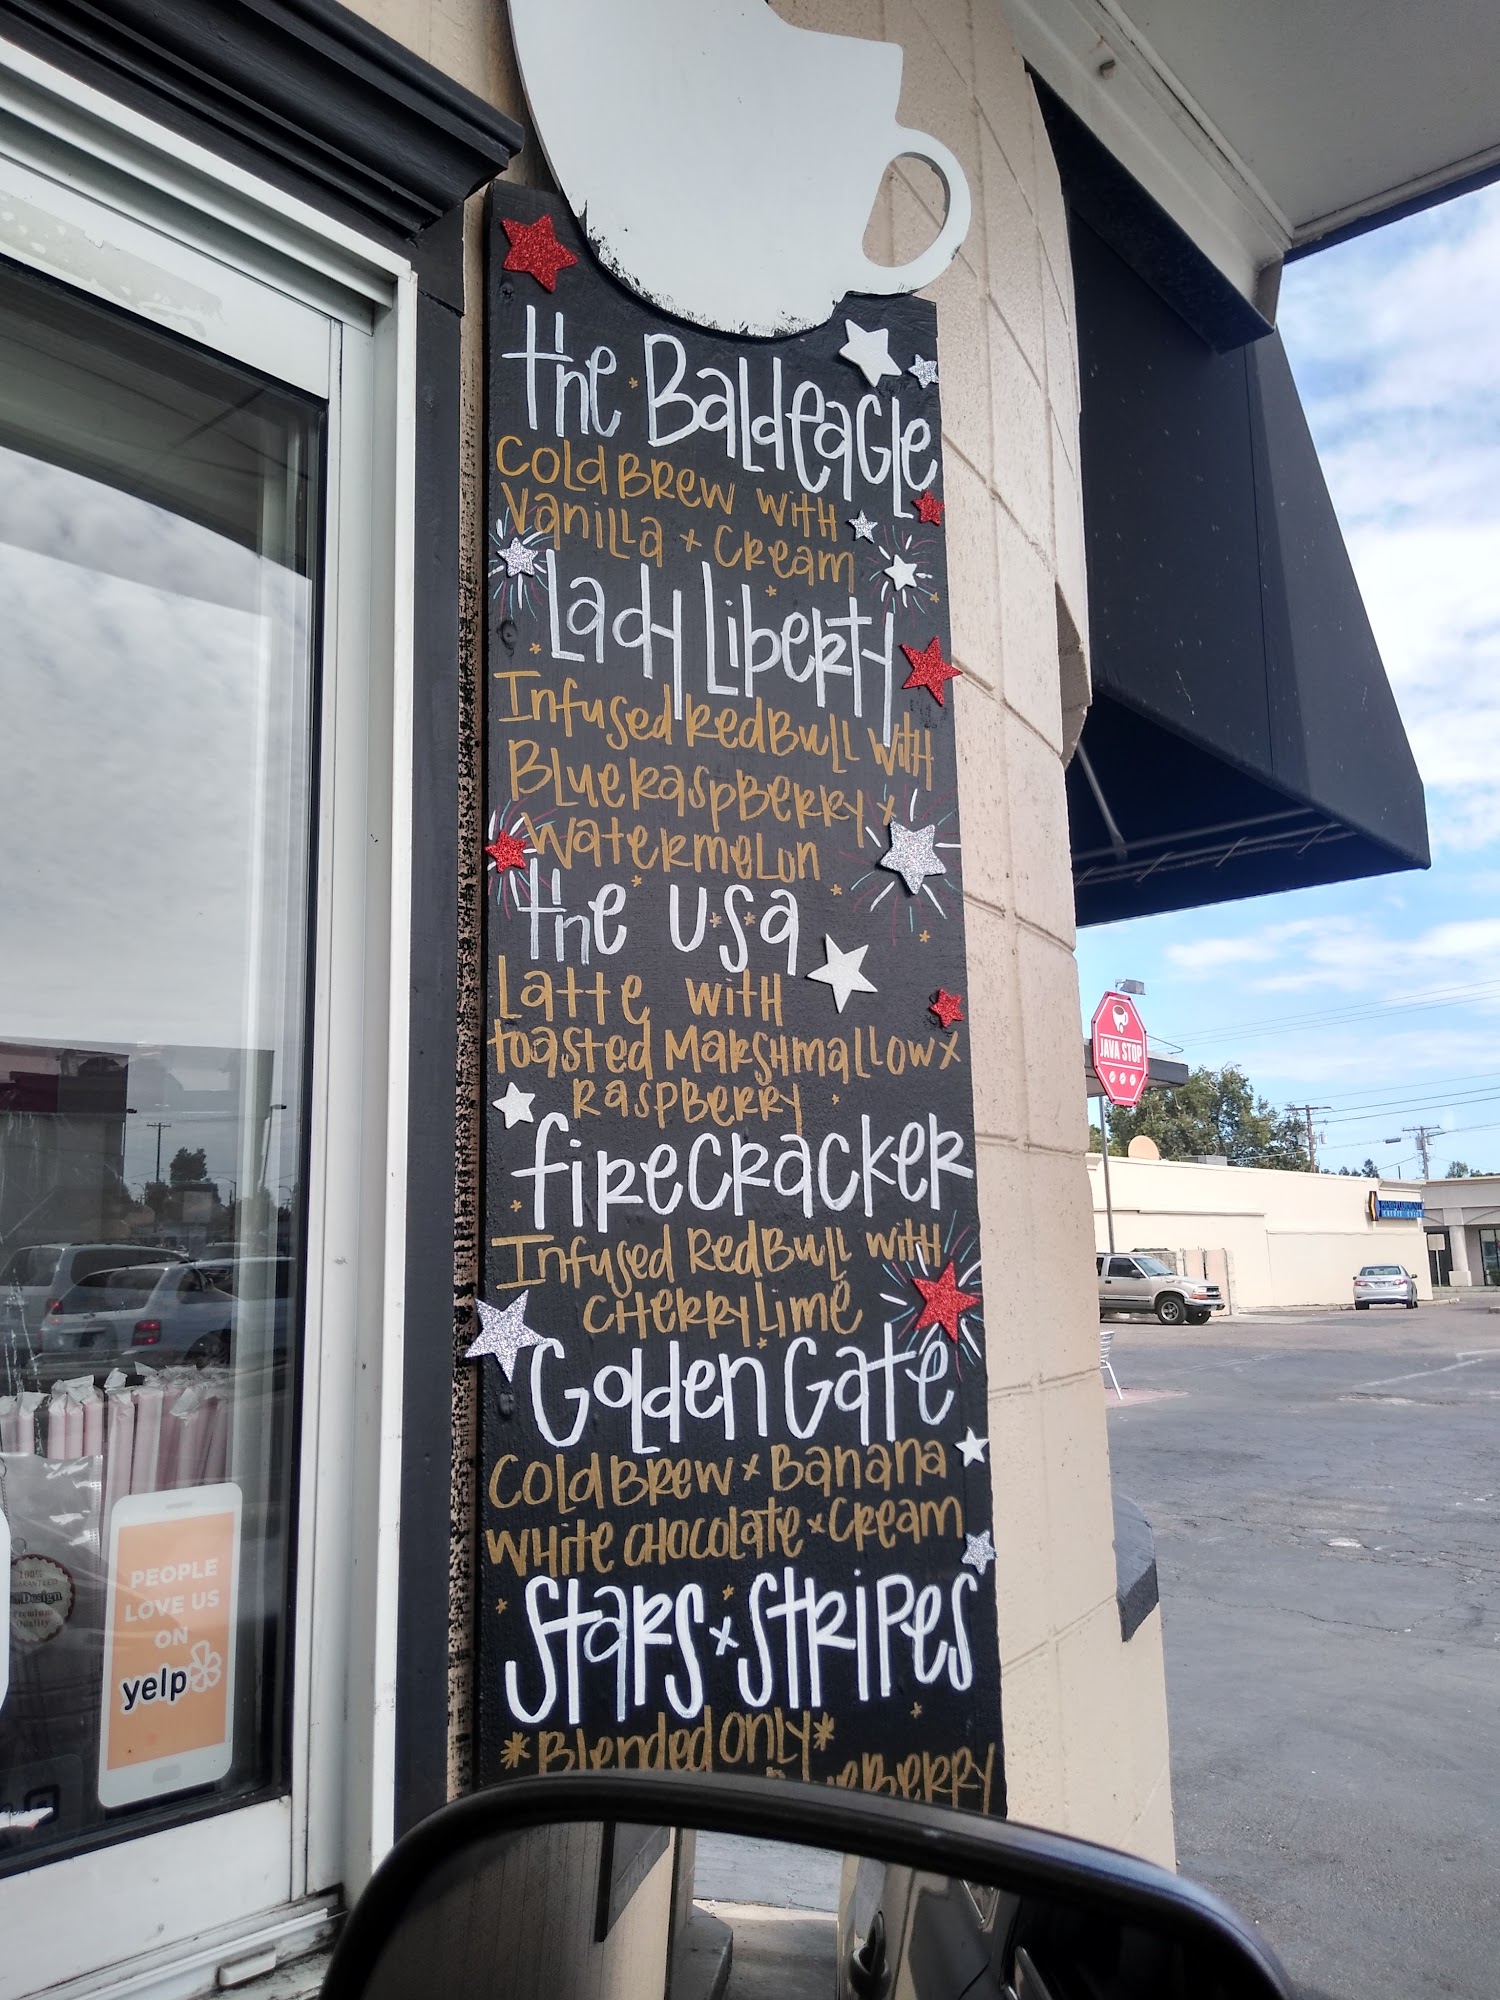 the Baldeagle
Cold Brew with
Vanilla + Cream
Lady Liberty
Infused RedBull with
Blue Raspberry +
Watermelon
the USA
Latte with
toasted Marshmallow +
Raspberry
firecracker
Infused RedBull with
Cherry Lime
Golden Gate
Cold Brew + Banana
White Chocolate + Cream
Stars + Stripes
*Blended Only*
JAVA STOP
PEOPLE
LOVE US
ON
yelp
100%
Design
Premium
Quality